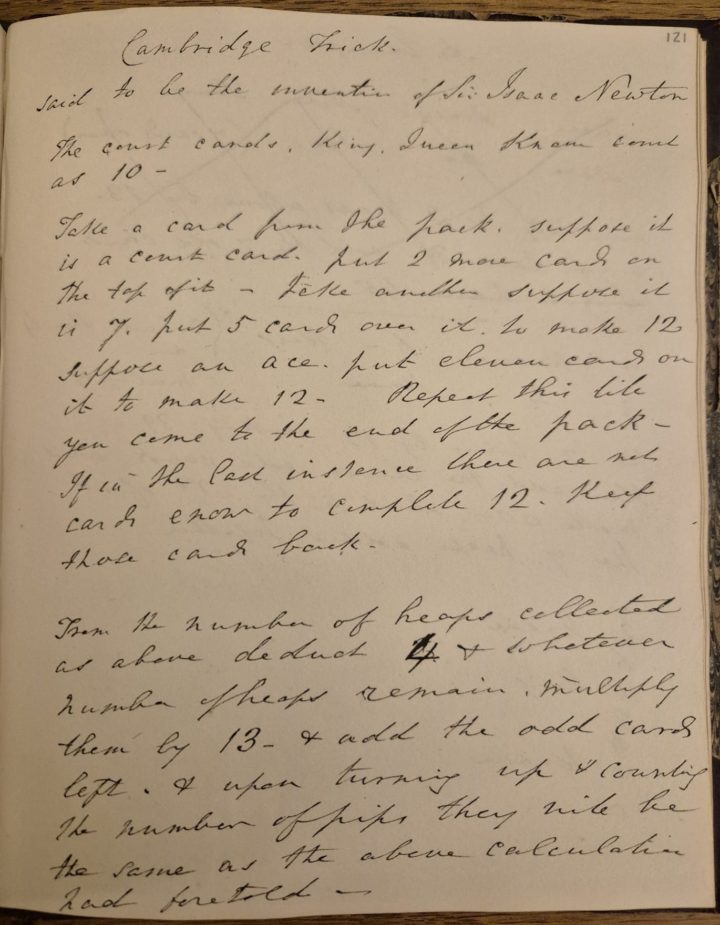 121
Cambridge Trick.
said to be the invention of Sir Isaac Newton
The court cards, King, Queen Knave count
as 10 -
Take a card from the pack. suppose it
is a court card. put 2 more cards on
the top of it - take another suppose it
is 7. put 5 cards over it. to make 12
suppose an ace. put eleven cards on
it to make 12 - Repeat this till
you come to the end of the pack -
If in the last instance there are not
cards enow to complete 12. Keep
those cards back.
From the number of heaps collected
as above deduct 4 & whatever
number of heaps remain. multiply
them by 13 - & add the odd cards
left. & upon turning up & counting
the number of pips they will be
the same as the above calculation
had foretold -